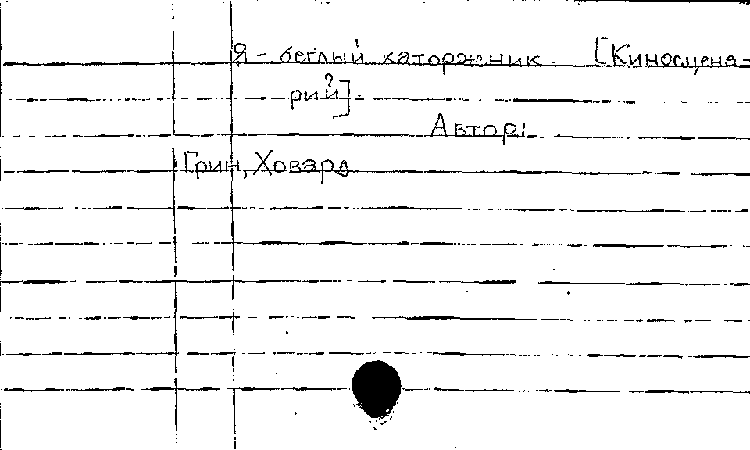 Я - беглый каторжник. [Киносцена-
рий].
Автор:
Грин, Ховард